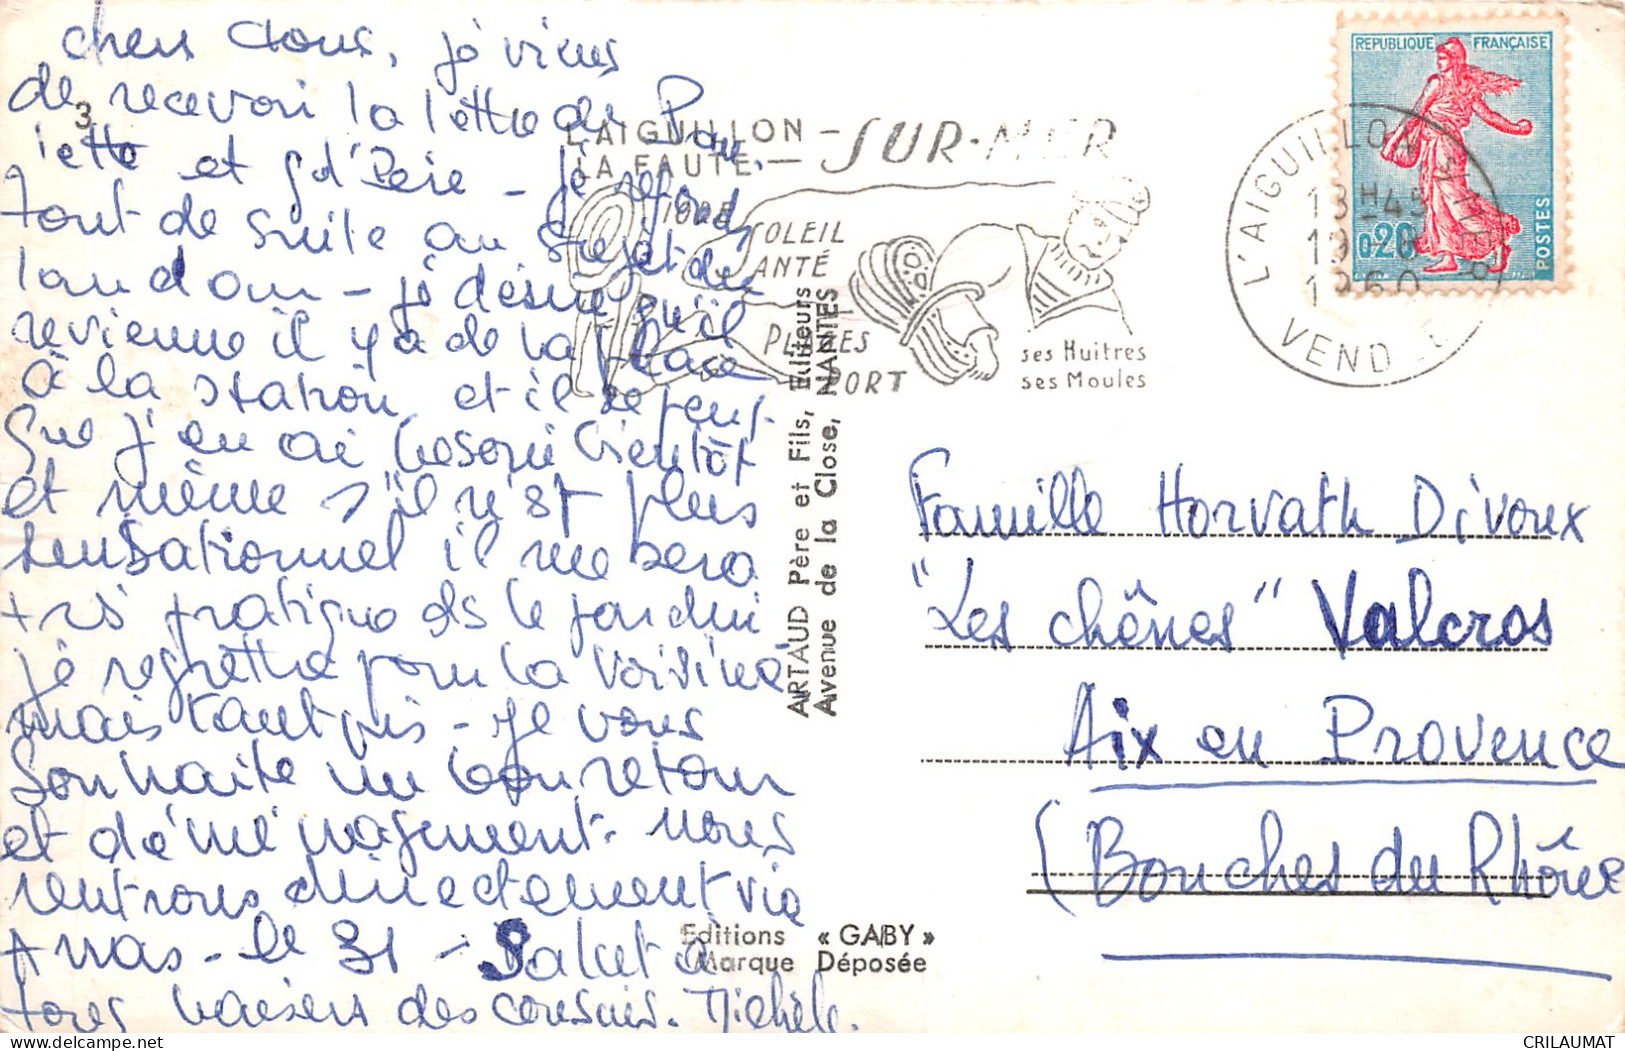 chers tous, je viens
de recevoir la lettre de Pau,
lette et gd'Père - je réponds
tout de suite au sujet du
landau - je désire qu'il
revienne il y a de la place
à la station et il se peut
que j'en ai besoin bientôt
et même s'il n'est plus
sensationnel il me sera
très pratique ds le jardin
je regrette pour la voisine
mais tant pis - je vous
souhaite un bon retour
et déménagement. nous
rentrons directement via
Arras - le 31 - Salut à
tous baisers des cousins. Michèle.
3
L'AIGUILLON - SUR-MER
LA FAUTE -
SOLEIL
SANTÉ
PLAGES
PORT
ses Huitres
ses Moules
L'AIGUILLON S MER
13H45
19 -8
1960
VENDÉE
REPUBLIQUE FRANÇAISE
0,20
POSTES
ARTAUD Père et Fils, Editeurs
Avenue de la Close, NANTES
Famille Horvath Divoux
"Les chênes" Valcros
Aix en Provence
(Bouches du Rhône
Editions « GABY »
Marque Déposée
CRILAUMAT